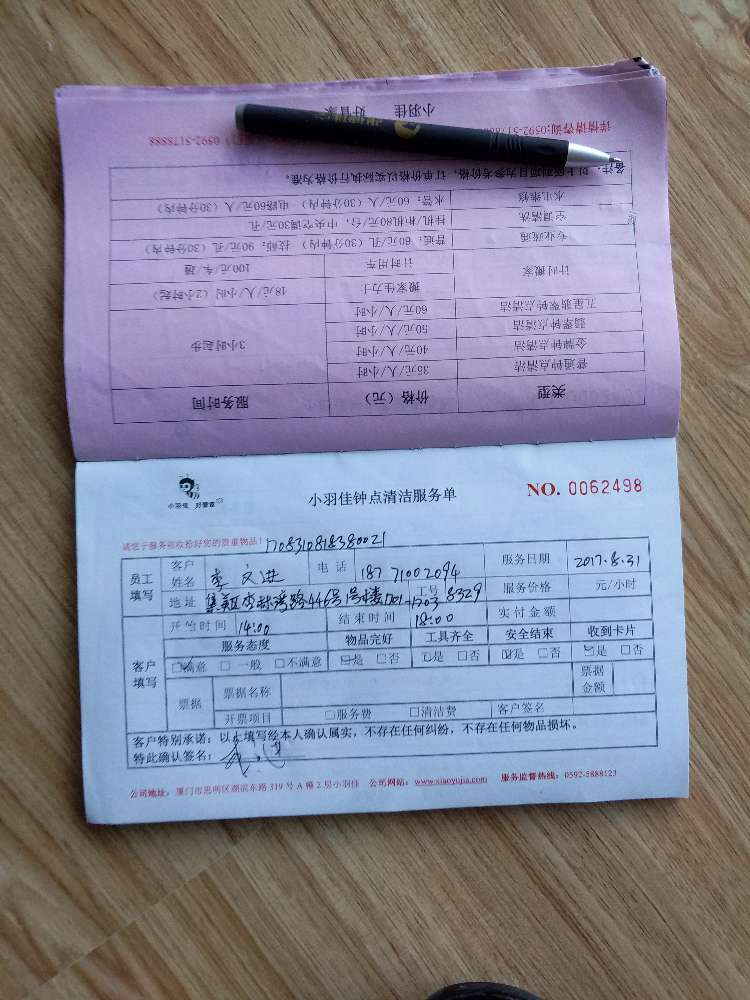 类型 价格（元） 服务时间
普通钟点清洁 35元/人/小时 3小时起步
金牌钟点清洁 40元/人/小时
翡翠钟点清洁 50元/人/小时
五星翡翠钟点清洁 60元/人/小时
计时搬家 搬家佳力士 18元/人/小时（2小时起）
计时用车 100元/车/趟
专业疏通 普通：60元/孔（30分钟内） 技术：90元/孔（30分钟内）
空调清洗 挂机/柜机80元/台，中央空调30元/孔
水电维修 水管：60元/人（30分钟内） 电路60元/人（30分钟内）
备注：以上
项目为参考价格，订单价格以实际执行价格为准。
详情请咨询:0592-517888
0592-5178888
小羽佳 好管家
小羽佳 好管家
小羽佳钟点清洁服务单
NO. 0062498
请您于服务前收拾好您的贵重物品！
1708310818380021
员工填写 客户姓名 李文进 电话 18771002094 服务日期 2017.8.31
地址 集美区杏林湾路446号1号楼1701-1703 工号 8329 服务价格 元/小时
开始时间 14:00 结束时间 18:00 实付金额
客户填写 服务态度 物品完好 工具齐全 安全结束 收到卡片
☑满意 □一般 □不满意 ☑是 □否 ☑是 □否 ☑是 □否 ☑是 □否
票据 票据名称 票据金额
开票项目 □服务费 □清洁费 客户签名
客户特别承诺：以上填写经本人确认属实，不存在任何纠纷，不存在任何物品损坏。
特此确认签名：
公司地址：厦门市思明区湖滨东路319号A幢2层小羽佳 公司网站：www.xiaoyujia.com 服务监督热线：0592-5888123